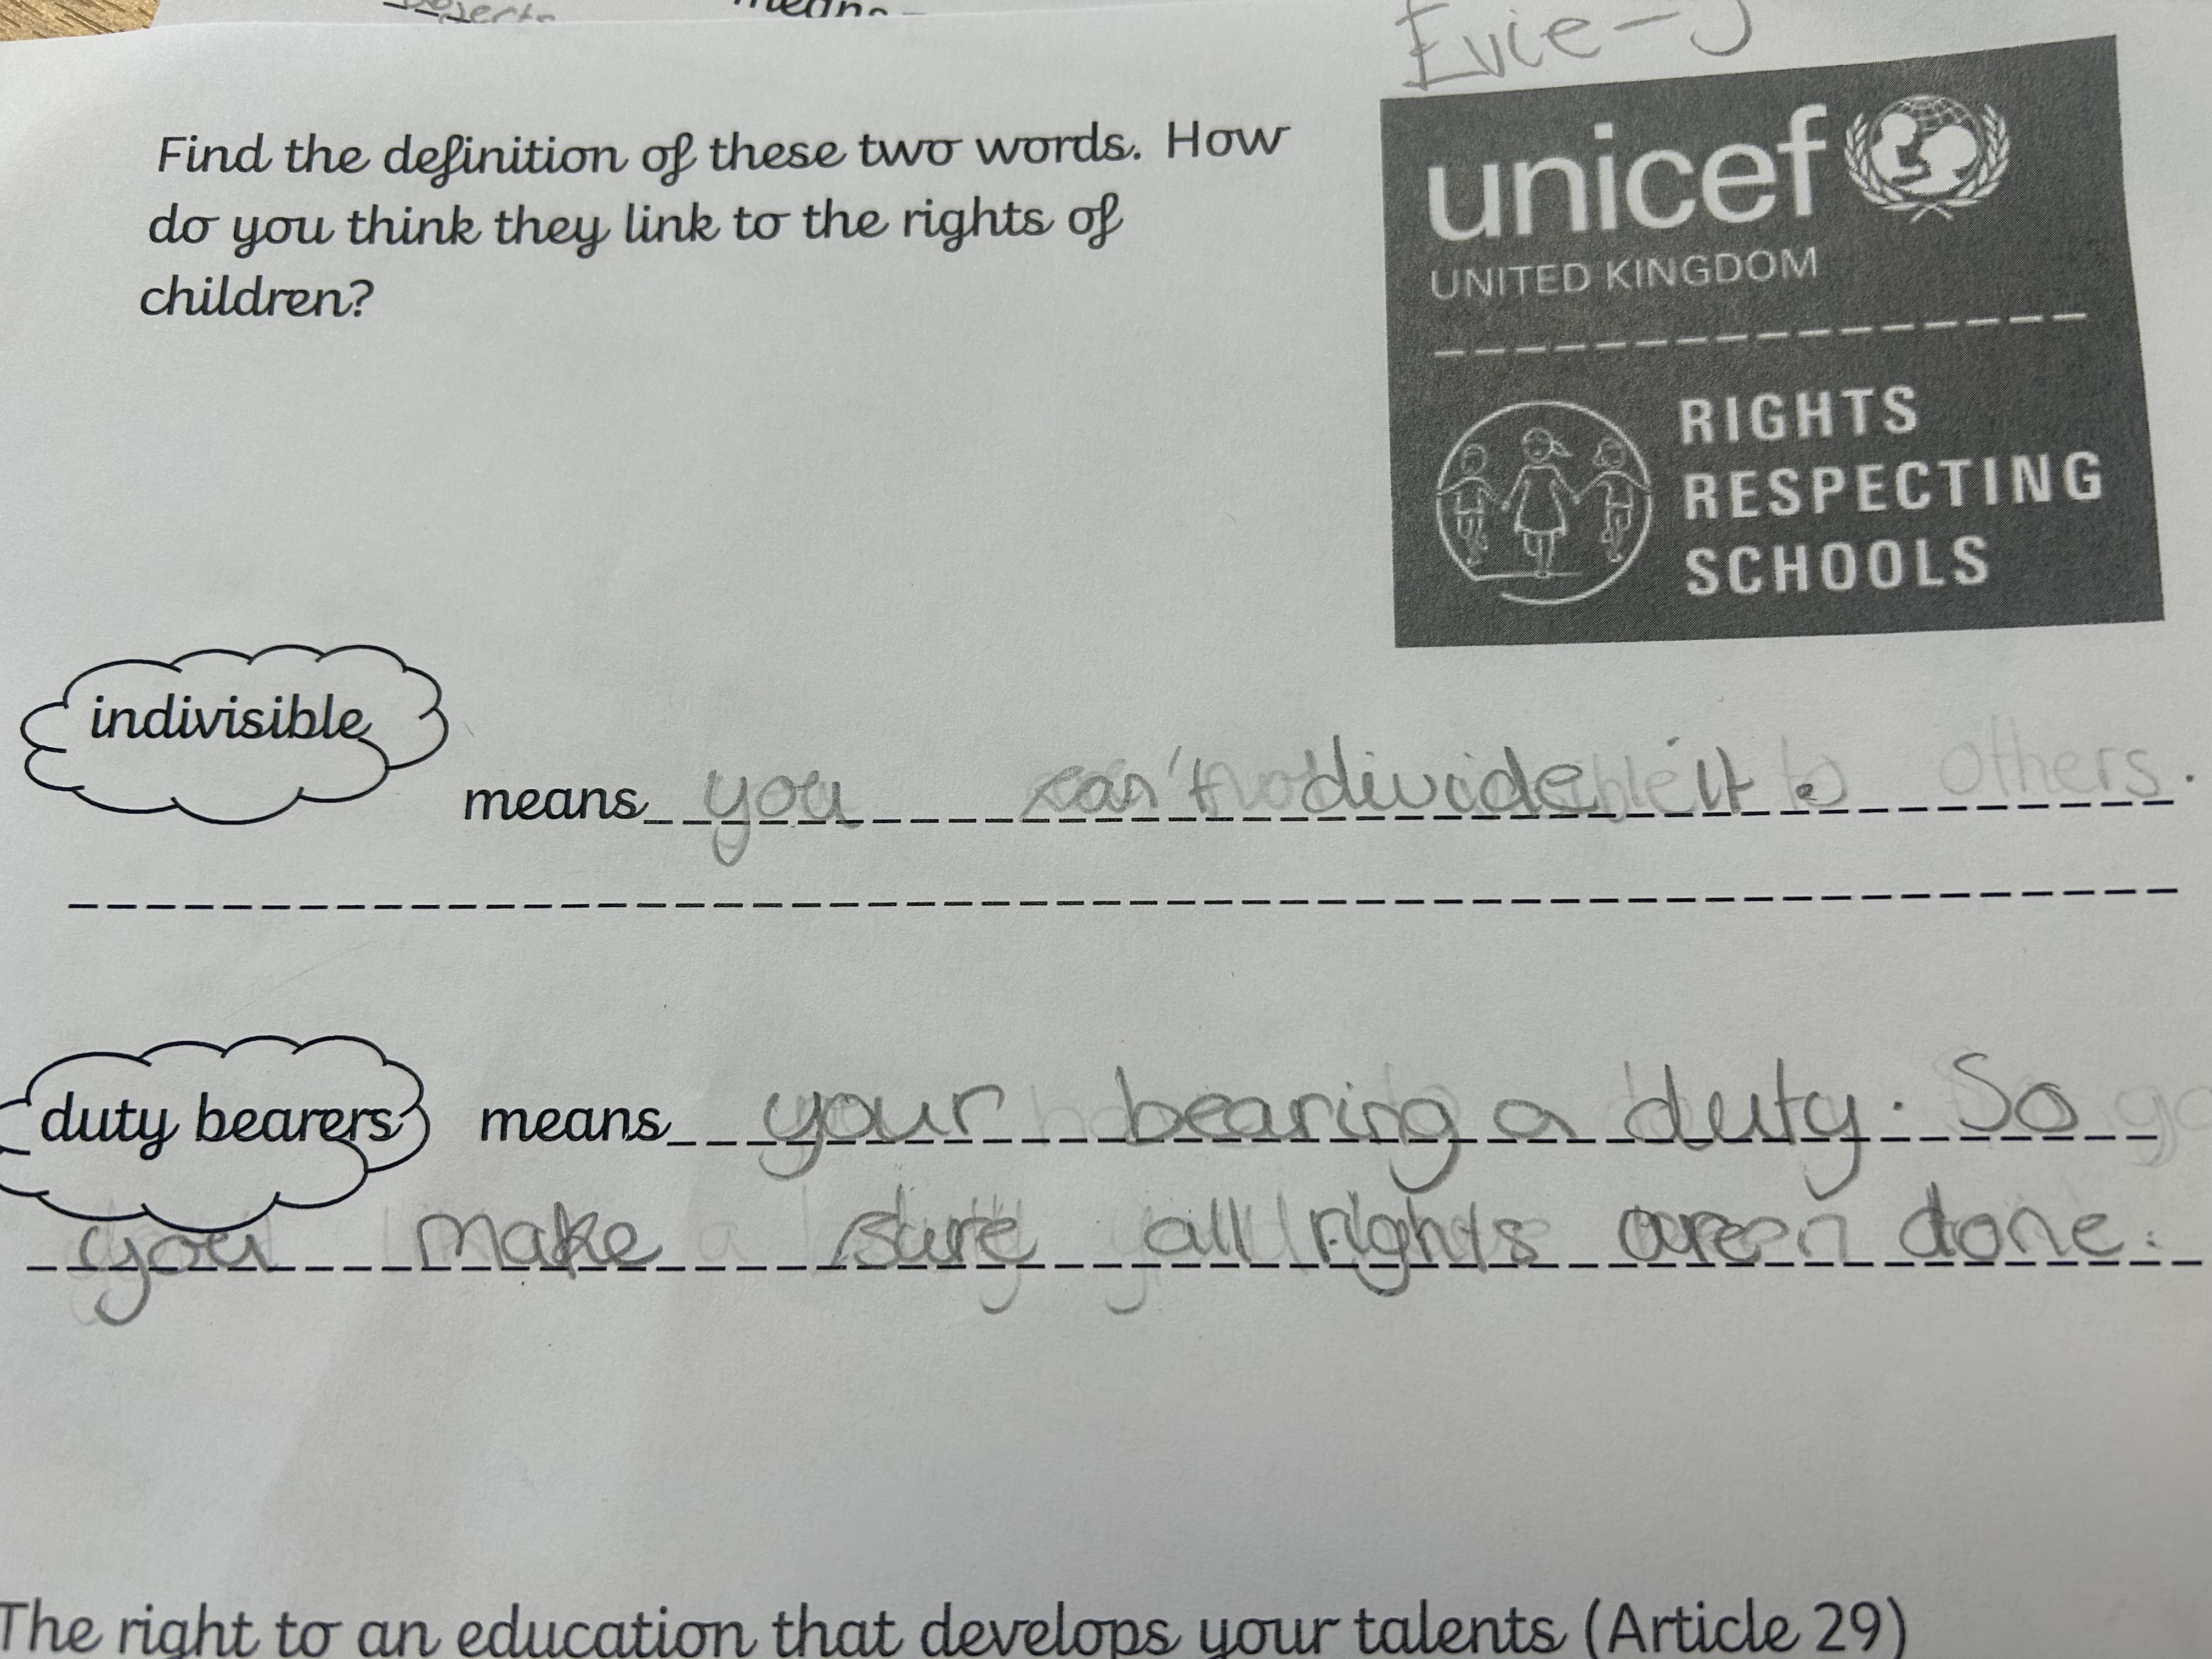 means
Evie-J
Find the definition of these two words. How
do you think they link to the rights of
children?
unicef
UNITED KINGDOM
RIGHTS
RESPECTING
SCHOOLS
indivisible
means you can't divide it. others.
duty bearers means your bearing a duty. So
you make sure all rights are done.
The right to an education that develops your talents (Article 29)